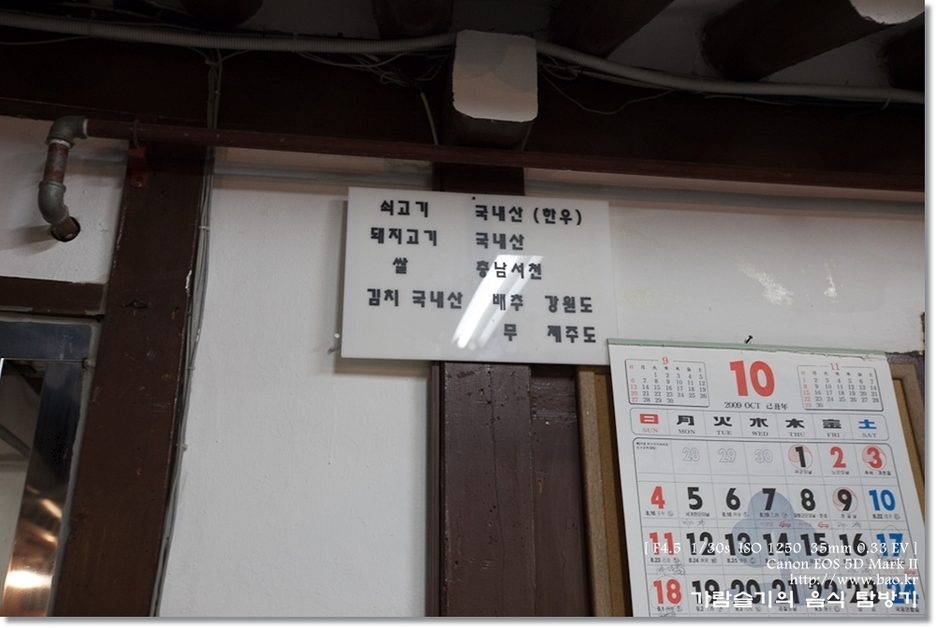 쇠고기 국내산 (한우)
돼지고기 국내산
쌀 충남서천
김치 국내산 배추 강원도
무 제주도
9 10 11
2009 OCT 己丑年
日 月 火 水 木 金 土
SUN MON TUE WED THU FRI SAT
28 29 30 1 2 3
4 5 6 7 8 9 10
11 12 13 14 15 16 17
18 19 20 21 22 23 24
[ F4.5 1/30s ISO 1250 35mm 0.33 EV ]
Canon EOS 5D Mark II
http://www.bao.kr
가람슬기의 음식 탐방기